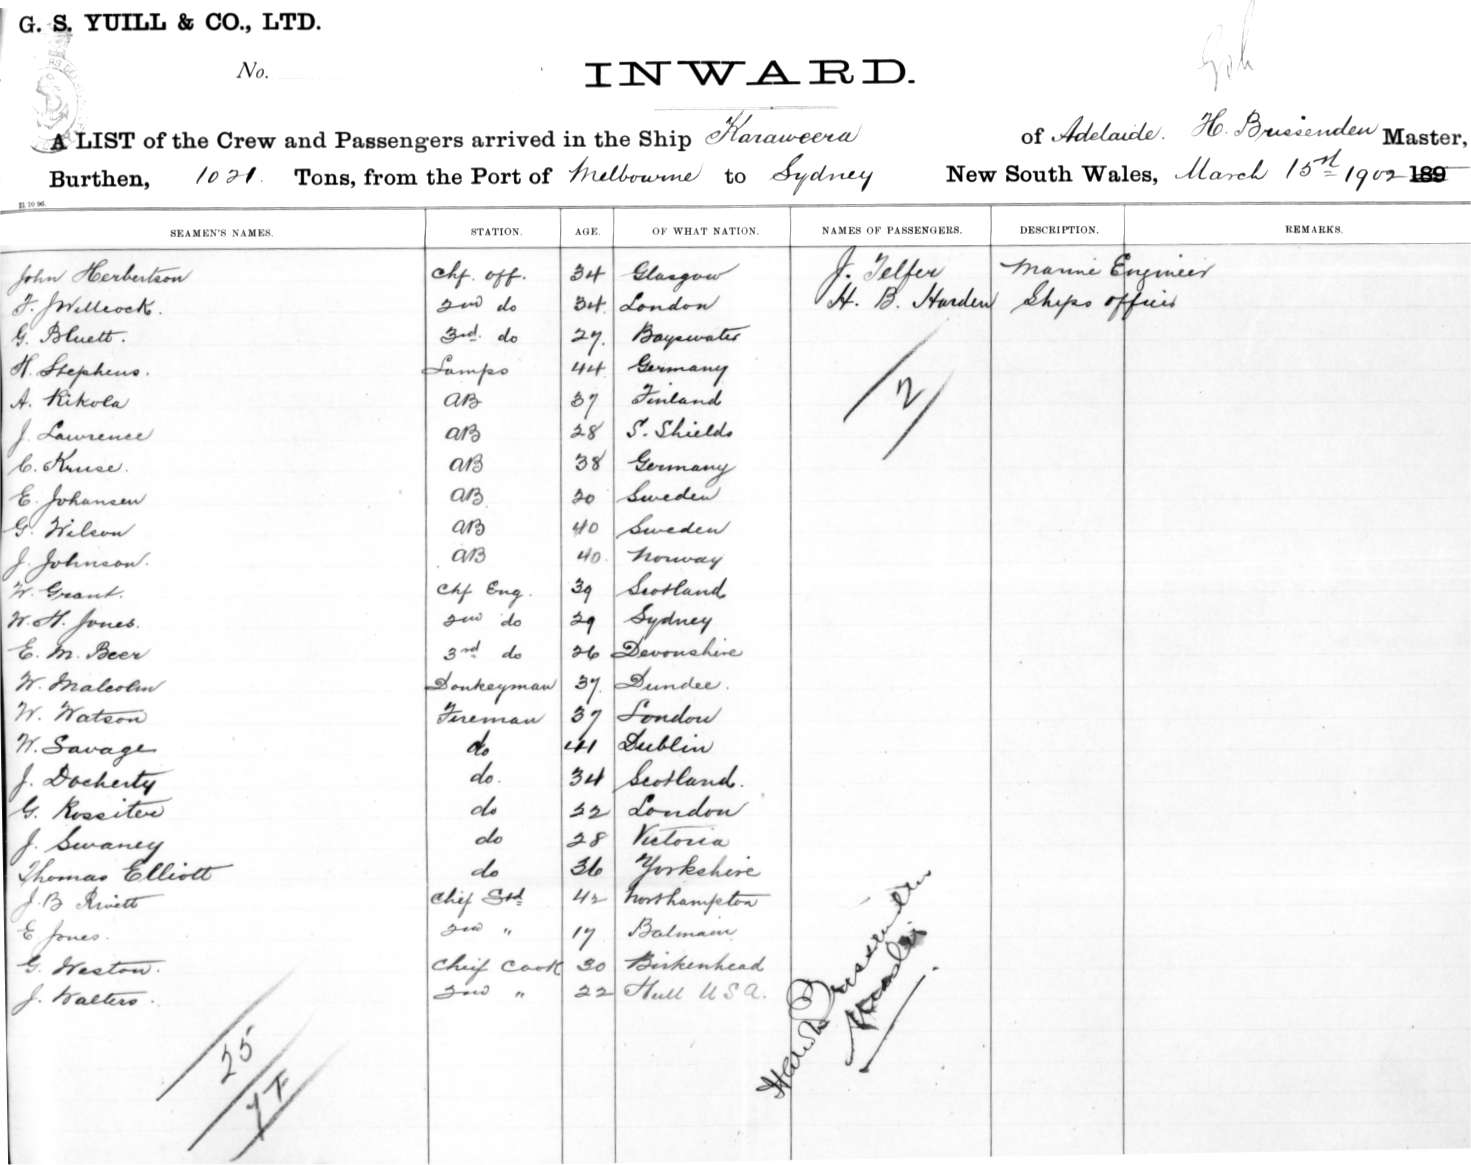 G. S. YUILL & CO., LTD.
No.
INWARD.
A LIST of the Crew and Passengers arrived in the Ship Karaweera of Adelaide. H. Brissenden Master,
Burthen, 1021. Tons, from the Port of Melbourne to Sydney New South Wales, March 15st 1902 189
21 10 96.
SEAMEN'S NAMES. STATION. AGE. OF WHAT NATION. NAMES OF PASSENGERS. DESCRIPTION. REMARKS.
John Herbertson Chf. off. 34 Glasgow J. Telfer Marine Engineer
F. J Willcock. 2nd do 34. London H. B. Harden Ships officer
G. Bluett. 3rd. do 27. Bayswater
H. Stephens. Lamps 44 Germany
2
A. Kikola AB 37 Finland
J. Lawrence AB 28 S. Shields
C. Kruse. AB 38 Germany
E. Johansen AB 20 Sweden
G. Wilson AB 40 Sweden
J. Johnson. AB 40. Norway
W. Grant. Chf Eng. 39 Scotland
W. H. Jones. 2nd do 29 Sydney
E. M. Beer 3rd do 26 Devonshire
W. Malcolm Donkeyman 37. Dundee.
W. Watson Fireman 37 London
W. Savage do 41 Dublin
J. Docherty do. 34 Scotland.
G. Rossiter do 22 London
J. Swaney do 28 Victoria
Thomas Elliott do 36 Yorkshire
J. B Rivett Chief Std 42 Northampton
E Jones. 2nd " 17 Balmain
G. Weston. Chief Cook 30 Birkenhead
J. Walters. 2nd " 22 Hull USA.
Brissenden
Master
25